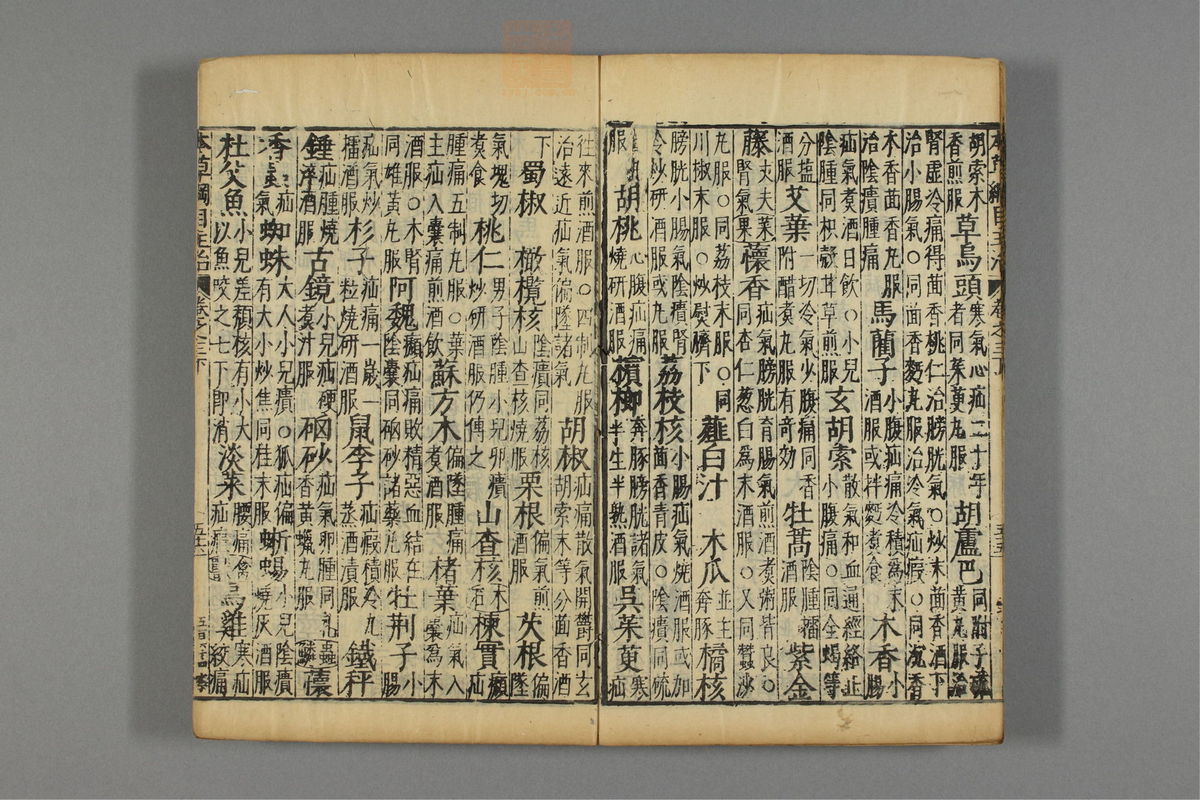 胡索木香煎服 草烏頭 寒氣心疝二十年者同茱萸丸服 胡盧巴 同附子硫黃丸服治
腎虛冷痛得茴香桃仁治膀胱氣○炒末茴香酒下治小腸氣○同茴香麪丸服治冷氣疝瘕○同沉香
木香茴香丸服治陰㿉腫痛 馬藺子 小腹疝痛冷積為末酒服或拌麪煮食 木香 小腸
疝氣煮酒日飲○小兒陰腫同枳殼甘草煎服 玄胡索 散氣和血通經絡止小腹痛○同全蠍等
分鹽酒服 艾葉 一切冷氣少腹痛同香附醋煮丸服有奇效 牡蒿 陰腫擂酒服 紫金
藤 丈夫 蘹香 疝氣膀胱育腸氣煎酒煮粥皆良○同杏仁葱白爲末酒服○又同蠶沙
丸服○同荔枝末服○同川椒末服○炒熨臍下 薤白汁 木瓜 並主奔豚 橘核
膀胱小腸氣陰㿉腎冷炒研酒服或丸服 荔枝核 小腸疝氣燒酒服或加茴香青皮○陰㿉同硫
服 胡桃 心腹疝痛燒研酒服 檳榔 奔豚膀胱諸氣半生半熟酒服 吳茱萸 寒疝
往來煎酒服○四制丸服治遠近疝氣偏墜諸氣 胡椒 疝痛散氣開鬱同玄胡索末等分茴香酒
下 蜀椒 橄欖核 陰㿉同荔核山查核燒服 栗根 偏氣煎酒服 芡根 偏墜
氣塊切煮食 桃仁 男子陰腫小兒卵㿉炒研酒服仍傅之 山查核 木 楝實 㿗疝
腫痛五制丸服○葉主疝入囊痛煎酒飲 蘇方木 偏墜腫痛煮酒服 楮葉 疝氣入囊為末
酒服○木腎同雄黃丸服 阿魏 㿗疝痛敗精惡血結在陰囊同硇砂諸藥丸服 牡荊子 小腸
疝氣炒擂酒服 杉子 疝痛一歲一粒燒研酒服 鼠李子 疝瘕積冷九蒸酒漬服 鐵秤
錘 疝腫燒淬酒服 古鏡 小兒疝硬煮汁服 硇砂 疝氣卵腫同乳香黃蠟丸服 蟲鱗 蘹
香蟲 疝氣 蜘蛛 大人小兒㿉○狐疝偏有大小炒焦同桂末服 蜥蜴 小兒陰㿉燒灰酒服
杜父魚 小兒差㿗核有小大以魚咬之七下即消 淡菜 腰痛疝瘕 禽 烏雞 寒疝絞痛
本草綱目主治 卷之三下